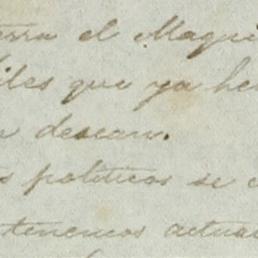 erra el Maqui
iles que ya he
n desean.
s políticos se
tenemos actua